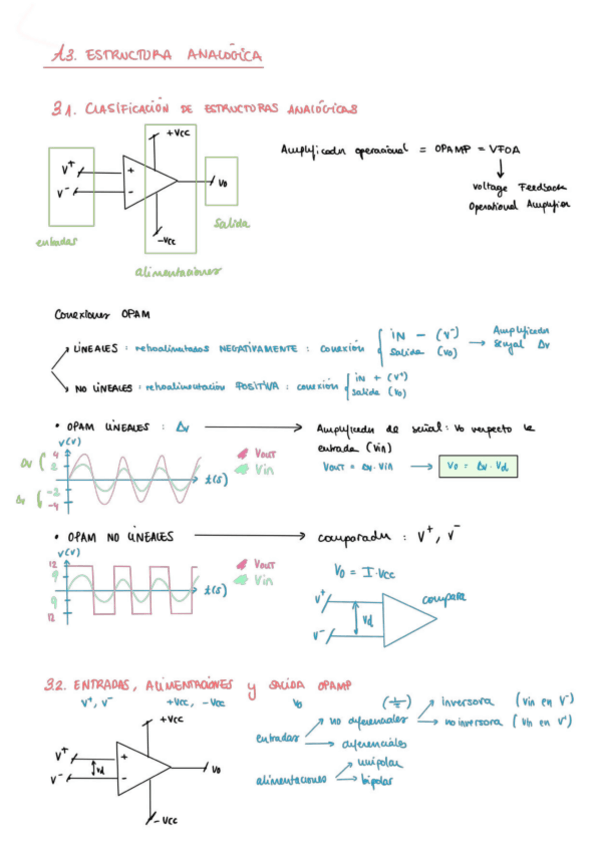 A3. ESTRUCTURA ANALÓGICA
3.1. CLASIFICACIÓN DE ESTRUCTURAS ANALÓGICAS
+Vcc
V+
V-
+
-
Vo
-Vcc
entradas
salida
alimentaciones
Amplificador operacional = OPAMP = VFOA
Voltage Feedback
Operational Amplifier
Conexiones OPAM
LINEALES : retroalimentados NEGATIVAMENTE : conexión
IN - (V-)
salida (Vo)
Amplificador
señal Δv
NO LINEALES : retroalimentación POSITIVA : conexión
IN + (V+)
salida (Vo)
• OPAM LINEALES : Δv
Amplificador de señal : Vo respecto la
entrada (Vin)
V(V)
4
2
-2
-4
Δv
Δv
t(s)
Vout
Vin
Vout = Δv · Vin
Vo = Δv · Vd
• OPAM NO LINEALES
comparador : V+, V-
V(V)
12
9
9
12
t(s)
Vout
Vin
Vo = I · Vcc
V+
V-
Vd
compara
3.2. ENTRADAS, ALIMENTACIONES y SALIDA OPAMP
V+, V-
+Vcc, -Vcc
Vo
+Vcc
V+
V-
Vd
+
-
Vo
-Vcc
entradas
no diferenciales
inversora (Vin en V-)
no inversora (Vin en V+)
diferenciales
alimentaciones
unipolar
bipolar